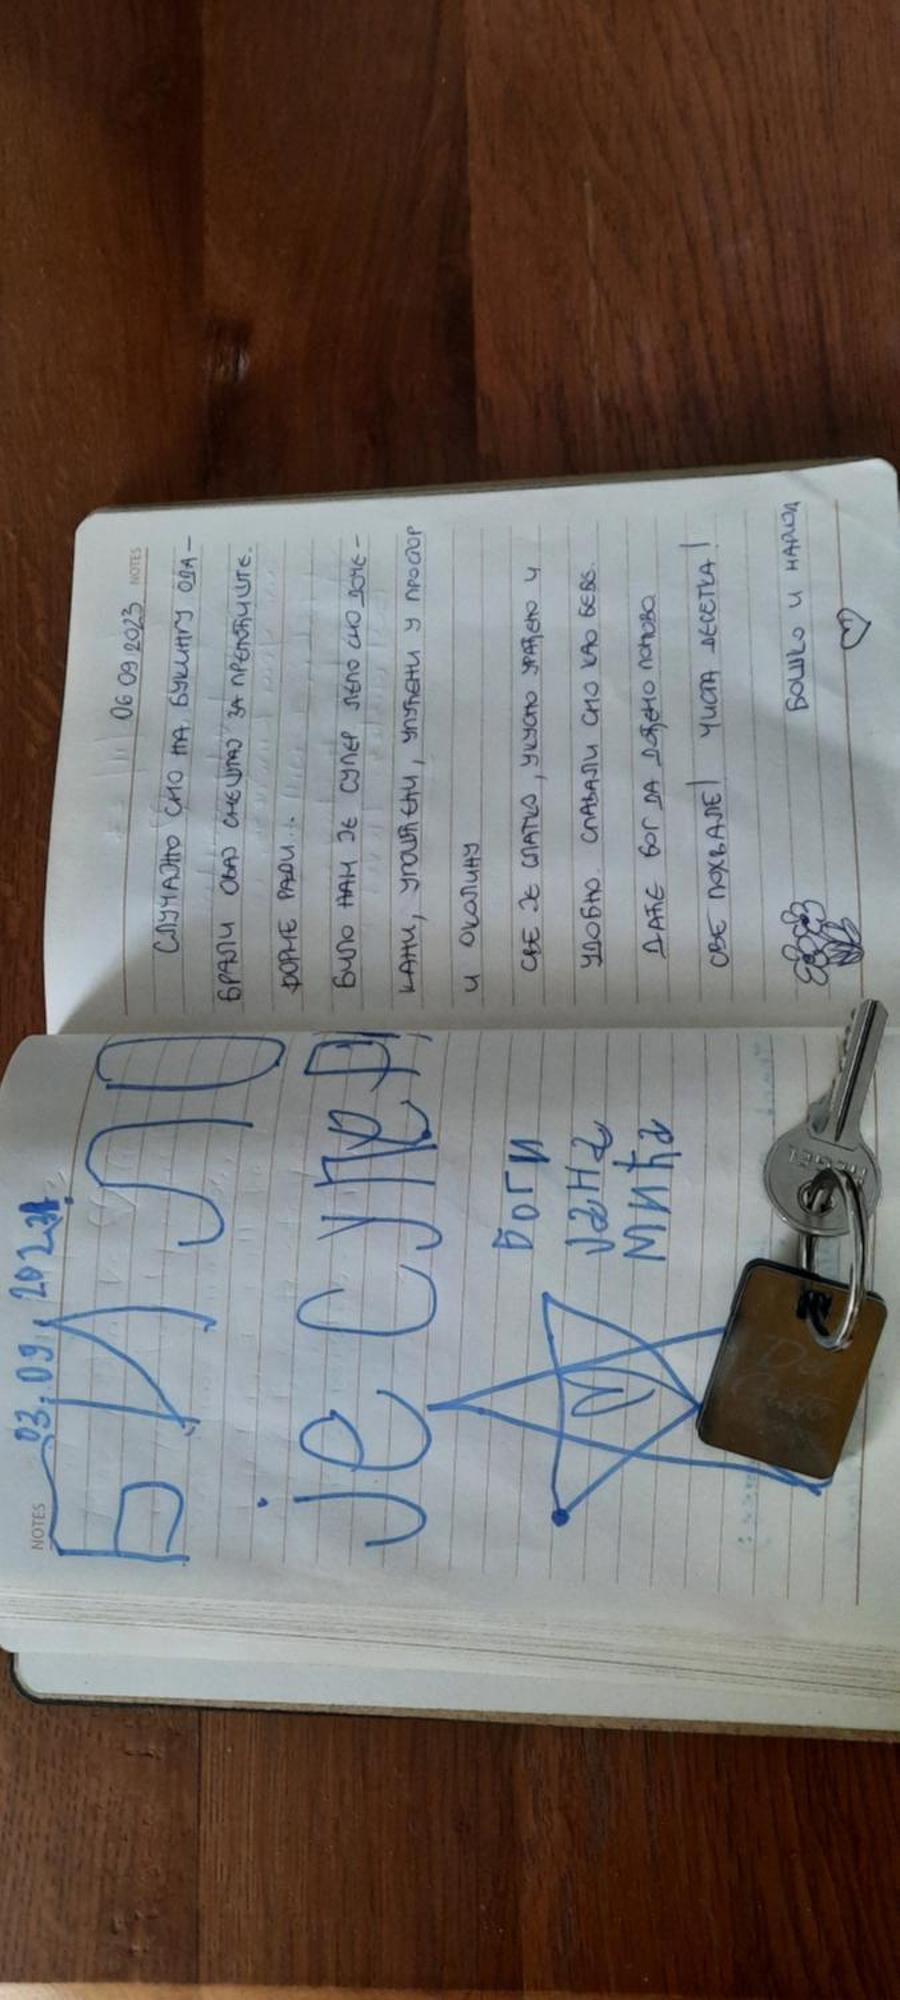 NOTES
03.09.2023.
БИЛО
је Супер
Боги
Јана
Мића
NOTES
06 09 2023
СЛУЧАЈНО СМО НА БУКИНГУ ОДА-
БРАЛИ ОВАЈ СМЕШТАЈ ЗА ПРЕНОЋИШТЕ.
ФОРМЕ РАДИ...
БИЛО НАМ ЈЕ СУПЕР ЛЕПО СМО ДОЧЕ-
КАНИ, УГОШЋЕНИ, УПУЋЕНИ У ПРОСТОР
И ОКОЛИНУ
СВЕ ЈЕ СЛАТКО, УКУСНО УРАЂЕНО И
УДОБНО СПАВАЛИ СМО КАО БЕБЕ.
ДАЋЕ БОГ ДА ДОЂЕМО ПОНОВО.
СВЕ ПОХВАЛЕ! ЧИСТА ДЕСЕТКА!
БОШКО И